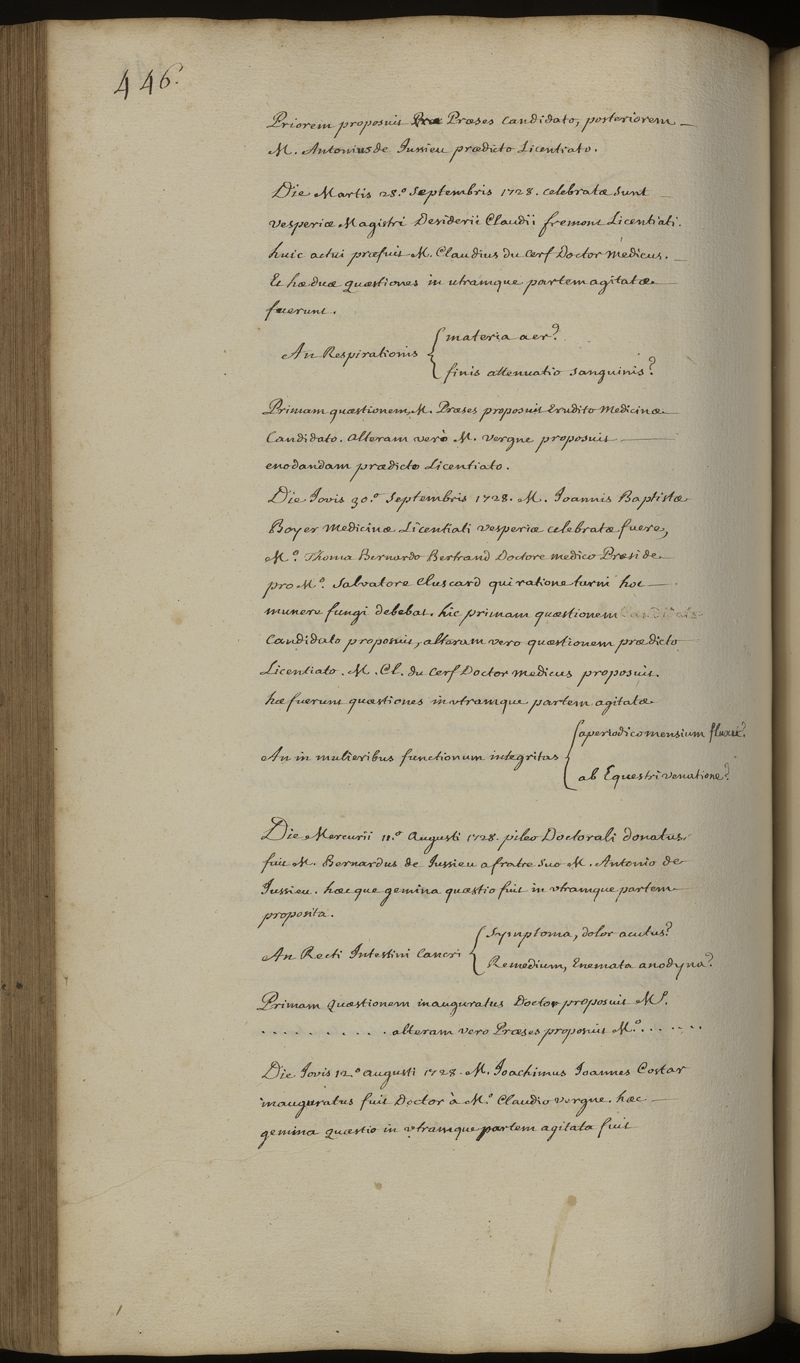 446.
Priorem proposuit Præses Candidato, posteriorem
M. Antonius de Jussieu prædicto Licentiato.
Die Martis 28.º Septembris 1728. celebratæ sunt
vesperiæ Magistri Desiderii Claudii fremont Licentiati.
huic actui præfuit M. Claudius du Cerf Doctor Medicus.
Et hæ duæ quæstiones in utramque partem agitatæ
fuerunt.
An Respirationis { materia aer?
finis attenuatio sanguinis?
Primam quæstionem M. Præses proposuit Erudito Medicinæ
Candidato. alteram verò M. vergne proposuit
enodandam prædicto Licentiato.
Die Jovis 30.º Septembris 1728. M. Joannis Baptistæ
Boyer Medicinæ Licentiati vesperiæ celebratæ fuere,
M.º Thoma Bernardo Bertrand Doctore medico Præside
pro M.º Salvatore Cluscard qui ratione turni hoc
munere fungi debebat. hic primam quæstionem
Candidato proposuit, alteram vero quæstionem prædicto
Licentiato. M. Cl. du Cerf Doctor medicus proposuit.
hæ fuerunt quæstiones in vtramque partem agitatæ
An in mulieribus functionum integritas { a periodico mensium fluxu?
ab Equestri venatione?
Die Mercurii 11.º Augusti 1728. pileo Doctorali donatus
fuit M. Bernardus de Jussieu a fratre suo M. Antonio de
Jussieu. hæcque gemina quæstio fuit in vtramque partem
proposita.
An Recti Intestini Cancri { Symptoma, dolor acutus?
Remedium, Enemata anodyna?
Primam Quæstionem inauguratus Doctor proposuit M.º
. . . . . . . . . . alteram vero Præses proposuit M.º . . . . . .
Die Jovis 12.º augusti 1728. M. Joachimus Joannes Costar
inauguratus fuit Doctor à M.º Claudio vergne. hæc
gemina quæstio in vtramque partem agitata fuit